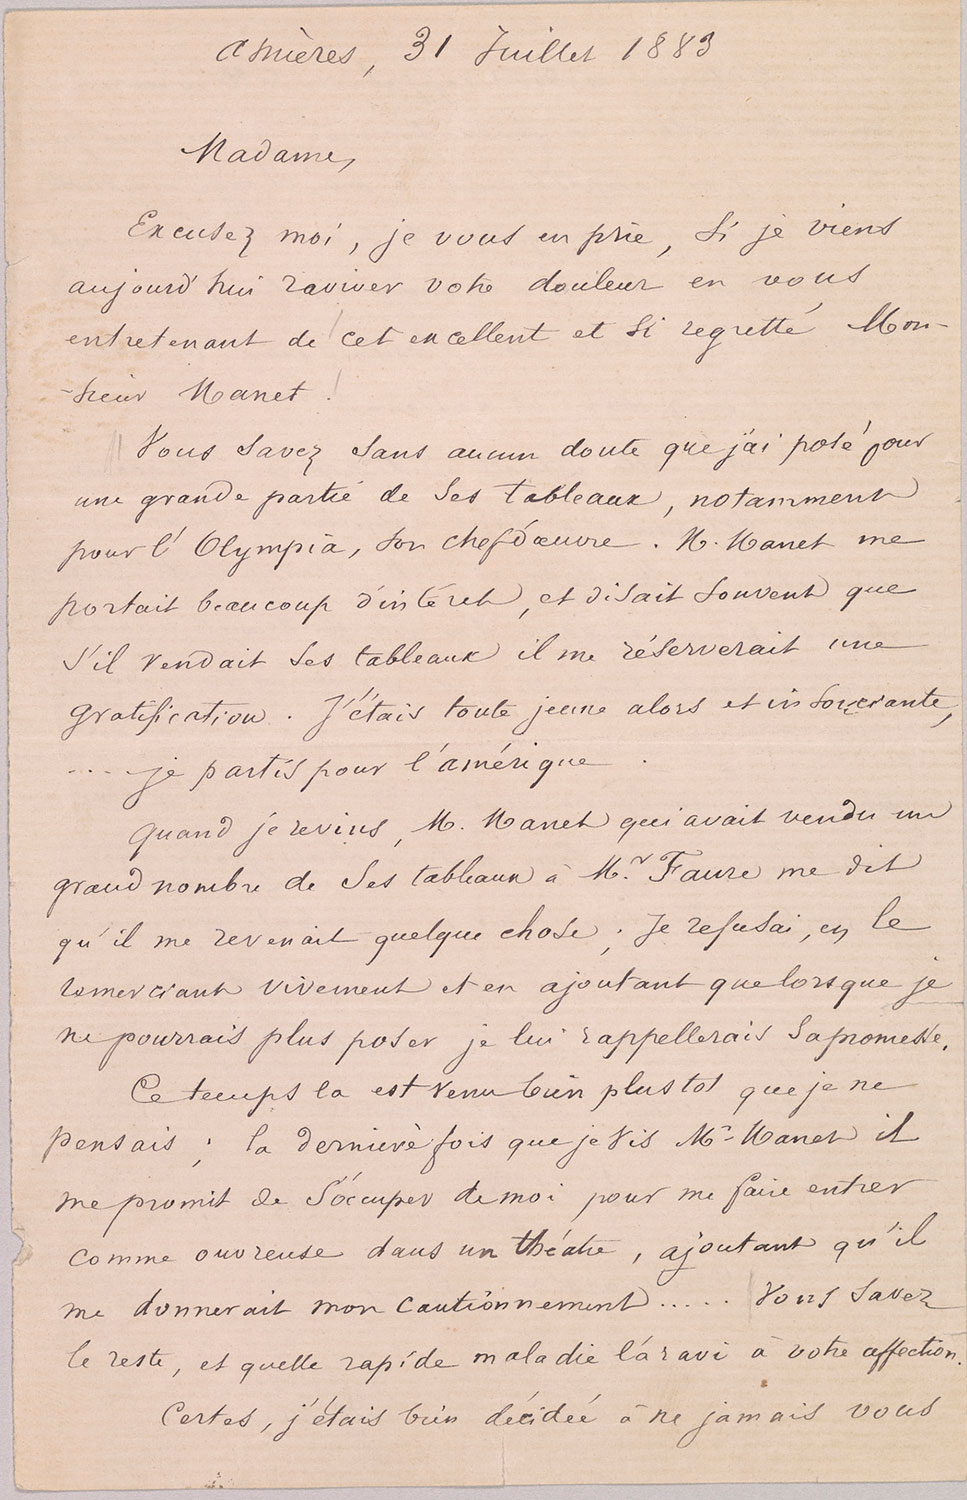 Asnières, 31 Juillet 1883
Madame,
Excusez moi, je vous en prie, si je viens
aujourd'hui raviver votre douleur en vous
entretenant de cet excellent et si regretté Mon-
-sieur Manet !
Vous savez sans aucun doute que j'ai posé pour
une grande partie de ses tableaux, notamment
pour l'Olympia, son chef d'œuvre. M. Manet me
portait beaucoup d'intéret, et disait souvent que
s'il vendait ses tableaux il me réserverait une
gratification. J'étais toute jeune alors et insouciante,
.... je partis pour l'amérique.
Quand je revins, M. Manet qui avait vendu un
grand nombre de ses tableaux à Mr. Faure me dit
qu'il me revenait quelque chose ; Je refusai, en le
remerciant vivement et en ajoutant que lorsque je
ne pourrais plus poser je lui rappellerais sa promesse.
Ce temps la est venu bien plus tot que je ne
pensais ; la dernière fois que je vis Mr Manet il
me promit de s'occuper de moi pour me faire entrer
comme ouvreuse dans un théatre, ajoutant qu'il
me donnerait mon cautionnement ..... Vous savez
le reste, et quelle rapide maladie l'a ravi à votre affection.
Certes, j'étais bien décidée à ne jamais vous